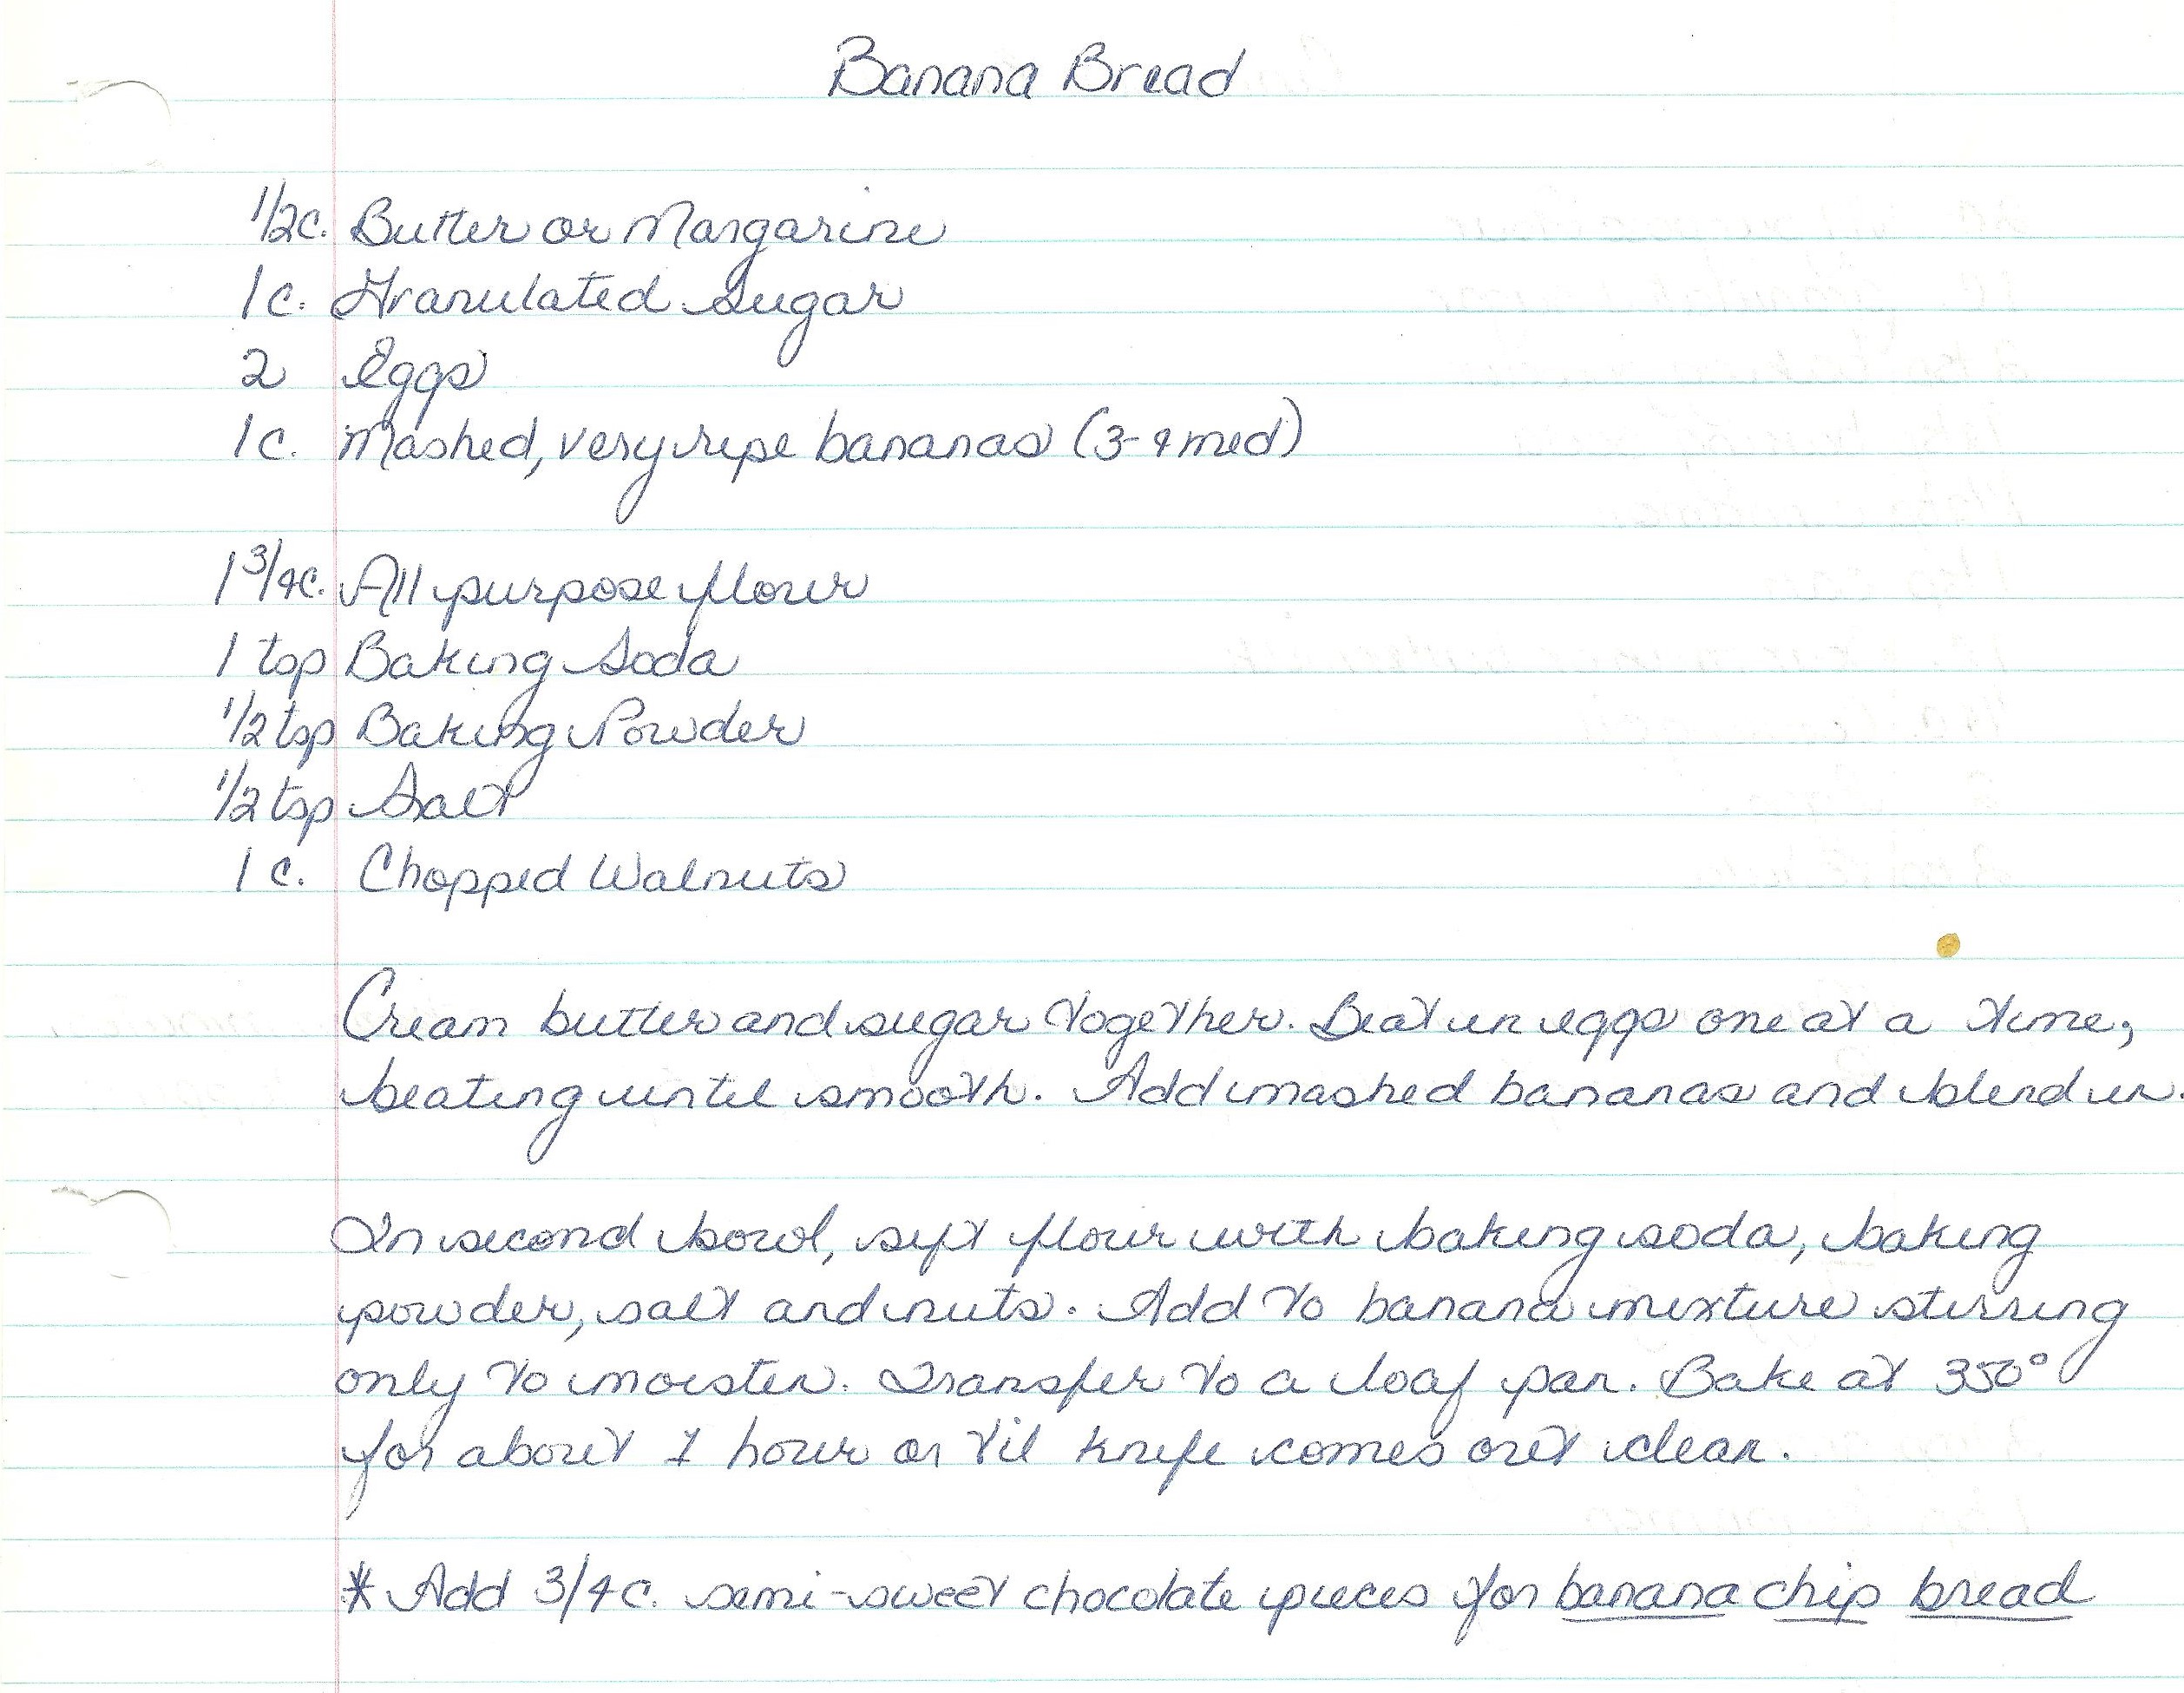 Banana Bread
1/2c. Butter or Margarine
1c. Granulated sugar
2 Eggs
1c. Mashed, very ripe bananas (3-4 med)
1 3/4c. All purpose flour
1 tsp Baking Soda
1/2 tsp Baking Powder
1/2 tsp Salt
1 c. Chopped Walnuts
Cream butter and sugar together. Beat in eggs one at a time,
beating until smooth. Add mashed bananas and blend in.
In second bowl, sift flour with baking soda, baking
powder, salt and nuts. Add to banana mixture stirring
only to moisten. Transfer to a loaf pan. Bake at 350°
for about 1 hour or til knife comes out clean.
* Add 3/4c. semi-sweet chocolate pieces for banana chip bread